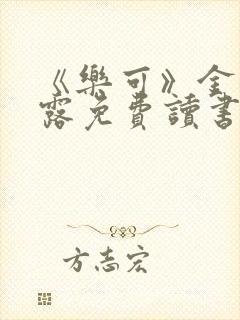 《樂可》全
露免費讀書
方志宏